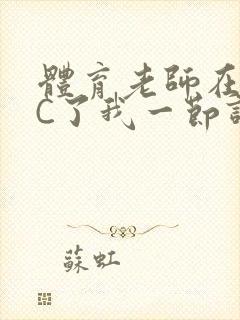 體育老師在
C了我一節
蘇虹